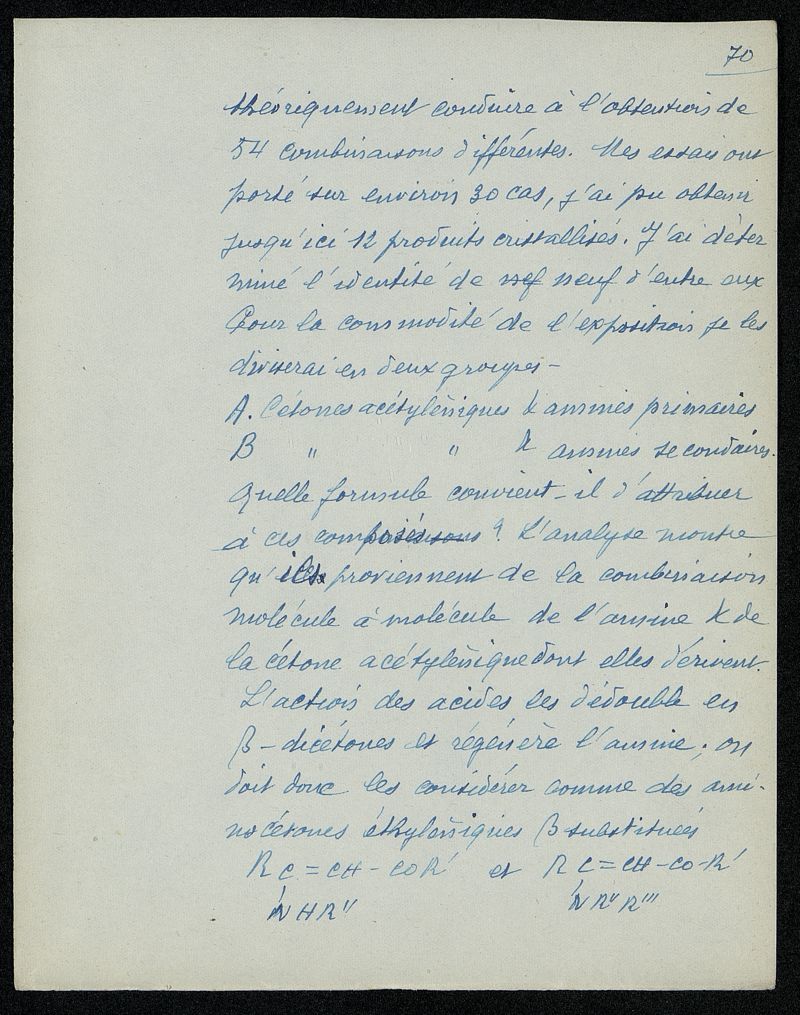 70
théoriquement conduire à l'obtention de
54 combinaisons différentes. Mes essais ont
porté sur environ 30 cas, j'ai pu obtenir
jusqu'ici 12 produits cristallisés. J'ai déter
miné l'identité de neuf d'entre eux
Pour la commodité de l'exposition je les
diviserai en deux groupes -
A. Cétones acétyléniques & amines primaires
B " " & amines secondaires.
Quelle formule convient-il d'attribuer
à ces composés ? L'analyse montre
qu'ils proviennent de la combinaison
molécule à molécule de l'amine & de
la cétone acétylénique dont elles dérivent.
L'action des acides les dédouble en
β-dicétones et régénère l'amine; on
doit donc les considérer comme des ami-
nocétones éthyléniques β substituées
RC=CH-COR' et RC=CH-CO-R'
NHR'' NR''R'''